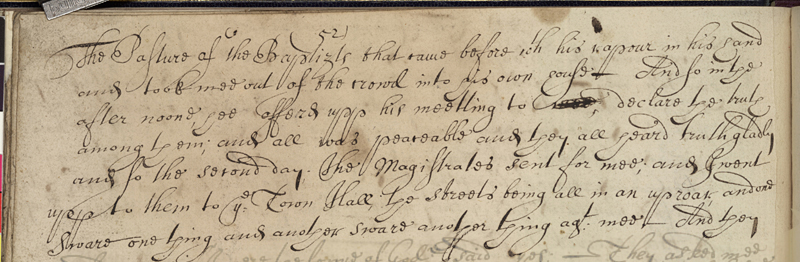 52
The Pasture of the Baptizts that came before wth his rapour in his hand
and took mee out of the crowd into his own house — And so in the
after noone, hee offerd upp his meetting to mee, declare the truth
among them; and all was peaceable and they all heard truth gladly
and so the second day. The Magistrates sent for mee; and I went
upp to them to ye Town Hall, the streets being all in an uproar and one
sware one thing and another sware another thing agt mee — And they
said yes: — They asked mee